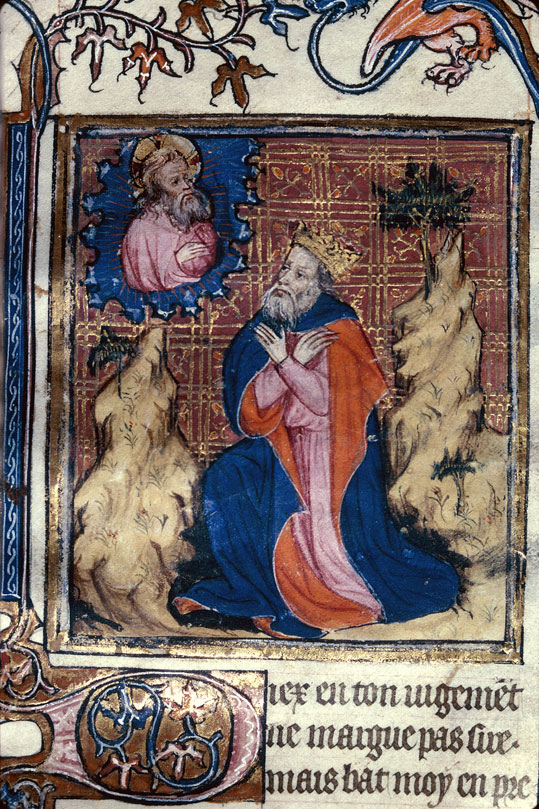 Diex en ton iugemēt
ne margue pas sire.
mais bat moy en pre